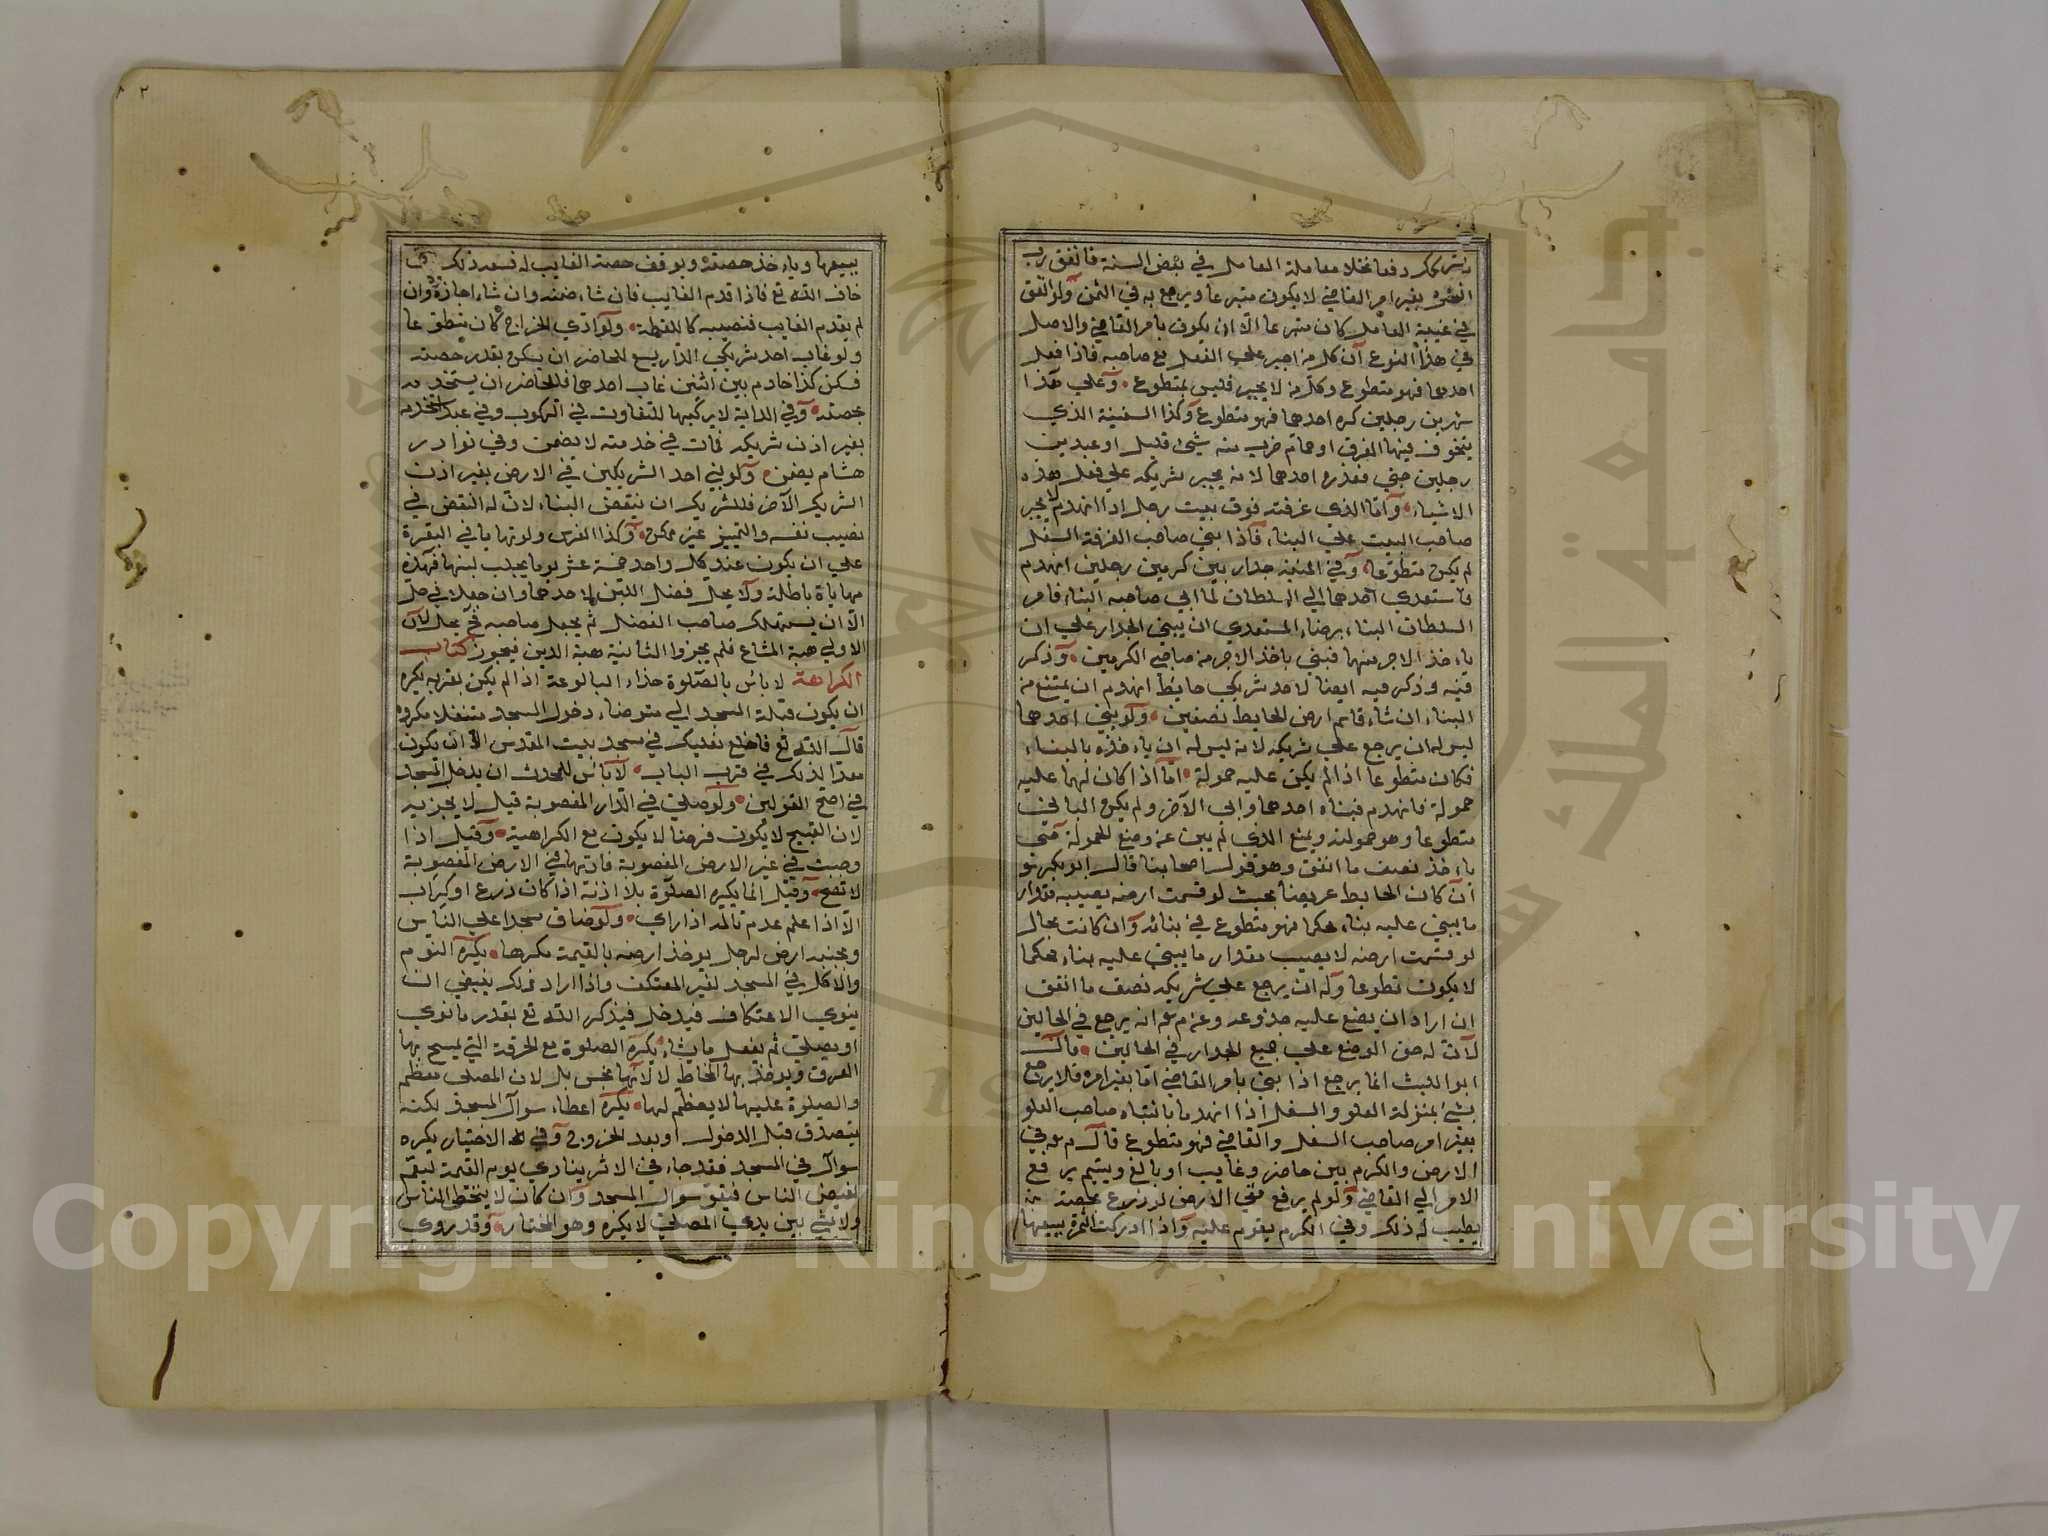 دفعا نخلا معاملة العامل في بعض السنة فانفق رب
بغير امر القاضي لا يكون متبرعا ويرجع به في الثمن ولو انفق
في غيبة العامل كان متبرعا الا ان يكون بامر القاضي والاصل
في هذا النوع ان كل من اجبر علي الفعل مع صاحبه فاذا فعل
احدهما فهو متطوع وكل من لا يجبر فليس بمتطوع وعلي هذا
نهر بين رجلين كره احدهما فهو متطوع وكذا السفينة الذي
يتخوف فيها الغرق او حمام خرب منه شيئ قليل او عبد بين
رجلين جني ففداه احدهما لانه يجبر شريكه علي فعل هذه
الاشياء واما الذي غرفته فوق بيت رجل اذا انهدم لا يجبر
صاحب البيت علي البناء فاذا بني صاحب الغرفة السفل
لم يكن متطوعا وفي المنية جدار بين كرمين رجلين انهدم
فاستعدي احدهما الي السلطان لما ابي صاحبه البناء فامر
السلطان البناء برضاء المستعدي ان يبني الجدار علي ان
ياءخذ الاجر منهما فبني ياخذ الاجر من صاحبي الكرمين وذكر
فيه وذكر فيه ايضا لاحد شريكي حايط انهدم ان يمتنع من
البناء ان شاء قاسم ارض الحايط نصفين ولو بني احدهما
ليس له ان يرجع علي شريكه لانه ليس له ان ياءخذه بالبناء
فكان متطوعا اذا لم يكن عليه حمولة اما اذا كان لهما عليه
حمولة فانهدم فبناه احدهما وابي الآخر ولم يكن الباني
متطوعا وهو حمولته ويمنع الذي لم يبن عن وضع الحمولة حتي
ياءخذ نصف ما انفق وهو قول اصحابنا قال ابو بكر
ان كان الحايط عريضا بحيث لو قسمت ارضه يصيبه مقدار
ما يبني عليه بناء محكما فهو متطوع في بنائه وان كانت بحال
لو قسمت ارضه لا يصيب مقدار ما يبني عليه بناء محكما
لا يكون تطوعا وله ان يرجع علي شريكه نصف ما انفق
ان اراد ان يضع عليه جذوعه وعن م انه يرجع في الحالين
لان له حق الوضع علي جميع الجدار في الحالين قال
ابو الليث انما يرجع اذا بني بامر القاضي اما بغير امره فلا يرجع
بشيئ بمنزلة العلو والسفل اذا انهدما بالبناء صاحب العلو
بغير امر صاحب السفل والقاضي فهو متطوع قال م في
الارض والكرم بين حاضر وغايب او بالغ ويتيم يرفع
الامر الي القاضي ولو لم يرفع ففي الارض لو زرع بحصته
يطيب له ذلك وفي الكرم يقوم عليه واذا ادركت الثمرة يبيعها
٨٢
يبيعها وياءخذ حصته ويوقف حصة الغايب له فسعه ذلك
خاف الله تع فاذا قدم الغايب فان شاء ضمنه وان شاء اجازه وان
لم يقدم الغايب فنصيبه كاللقطة ولو ادي الخراج كان متطوعا
ولو غاب احد شريكي الدار يسع للحاضر ان يسكن بقدر حصته
فسكن كذا خادم بين اثنين غاب احدهما فللحاضر ان يستخدمه
بحصته وفي الدابة لا يركبها للتفاوت في الركوب وفي عبد استخدمه
بغير اذن شريكه فمات في خدمته لا يضمن وفي نوادر
هشام يضمن ولو بني احد الشريكين في الارض بغير اذن
الشريك الآخر فللشريك ان ينقض البناء لان له النقض في
نصيب نفسه والتمييز غير ممكن وكذا الغرس ولو تهايا في البقرة
علي ان يكون عند كل واحد خمسة عشر يوما يحلب لبنها فهذه
مهاياة باطلة ولا يحل فضل اللبن لاحدهما وان جعلا في حل
الا ان يستهلك صاحب الفضل ثم يجعل صاحبه في حل لان
الاولي هبة المشاع فلم يجز والثانية هبة الدين فيجوز كتاب
الكراهة لا باس بالصلوة حذاء البالوعة اذا لم يكن بقربه يكره
ان يكون قبلة المسجد الي متوضاء دخول المسجد متنعلا مكروه
قال الله تع فاخلع نعليك في مسجد بيت المقدس الا ان يكون
معدا لذلك في قرب الباب لا باس للمحدث ان يدخل المسجد
في اصح القولين ولو صلي في الدار المغصوبة قيل لا يجزيه
لان القبيح لا يكون فرضا لا يكون مع الكراهية وقيل اذا
وجبت في غير الارض المغصوبة فاداها في الارض المغصوبة
لا تصح وقيل انما يكره الصلوة بلا اذنه اذا كان زرع او كراب
الا اذا علم عدم تالمه اذا راي ولو ضاق مسجدا علي الناس
وبجنبه ارض لرجل يوخذ ارضه بالقيمة مكرها يكره النوم
والاكل في المسجد لغير المعتكف واذا اراد ذلك ينبغي ان
ينوي الاعتكاف فيدخل فيذكر الله تع بقدر ما نوي
او يصلي ثم يفعل ما يشاء يكره الصلوة مع الخرقة التي يمسح بها
العرق ويوخذ بها المخاط لا لانها نجس بل لان المصلي معظم
والصلوة عليها لا يعظم لها يكره اعطاء سوال المسجد لكنه
يتصدق قبل الدخول او بعد الخروج وفي الاختيار يكره
سوال في المسجد فقد جاء في الاثر ينادي يوم القيمة ليقم
بغيض الناس فيقوم سوال المسجد وان كان لا يتخطي الناس
ولا يمشي بين يدي المصلي لا يكره وهو المختار وقد روي
Copyright © King Saud University
جامعة الملك سعود